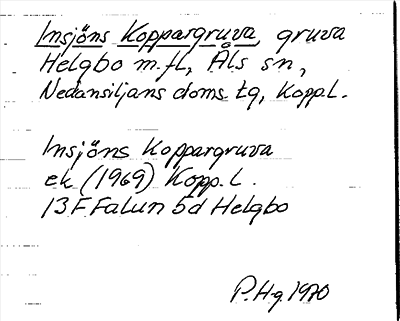 Insjöns Koppargruva, gruva
Helgbo m.fl., Åls sn,
Nedansiljans doms tg, Koppl.
Insjöns Koppargruva
ek (1969) Kopp. L.
13F Falun 5d Helgbo
P. H-g. 1970